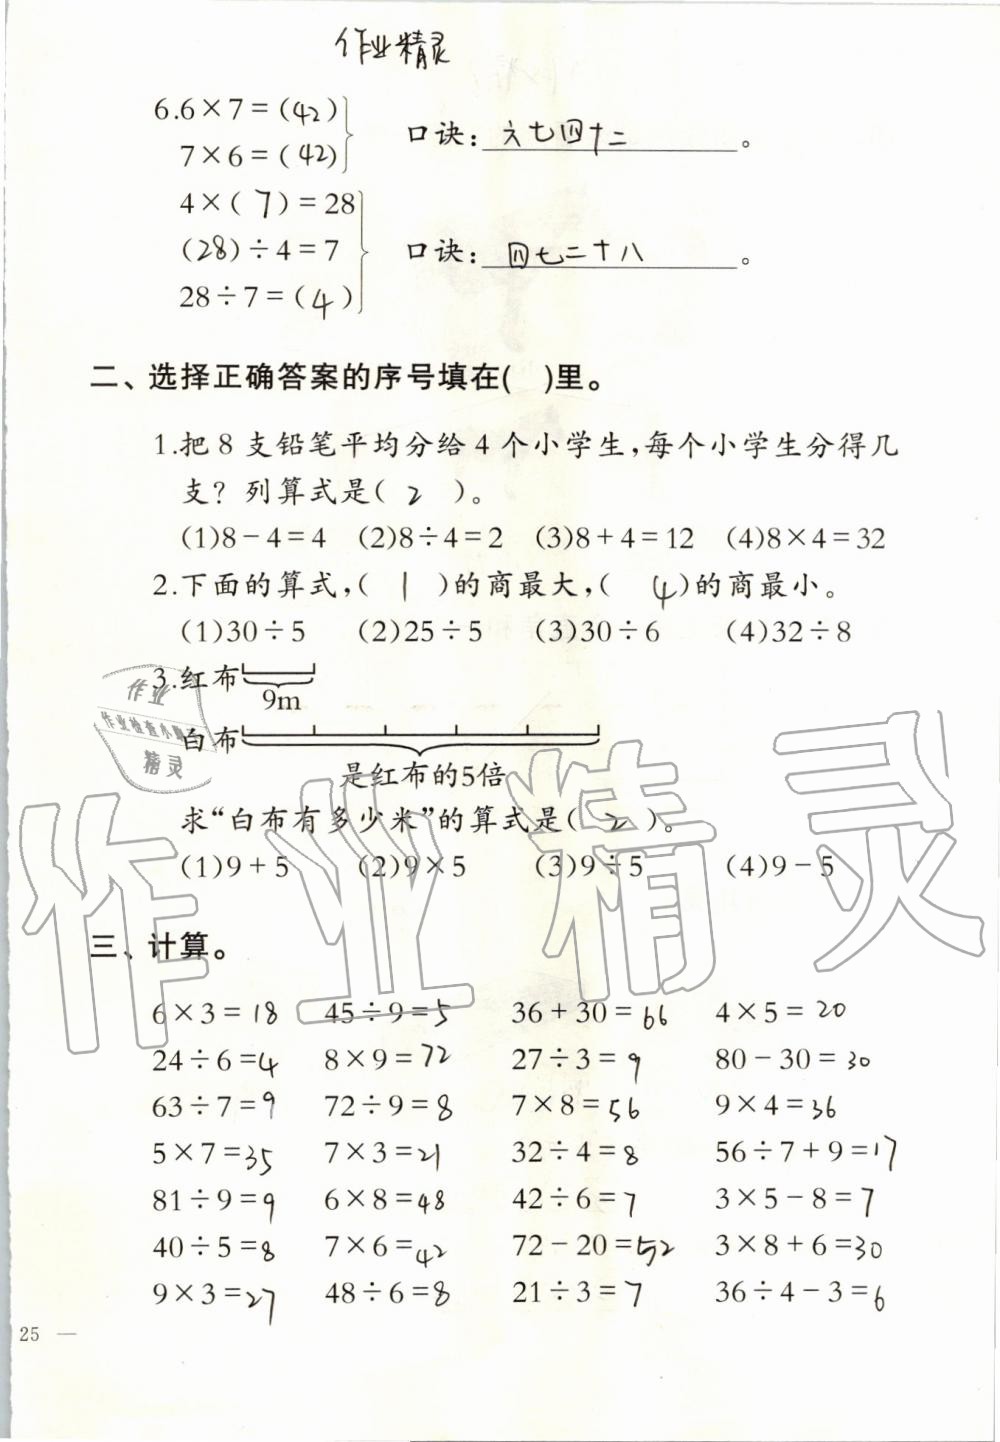 作业精灵
6.6×7=(42)
7×6=(42)
口诀:六七四十二。
4×(7)=28
(28)÷4=7
28÷7=(4)
口诀:四七二十八。
二、选择正确答案的序号填在( )里。
1.把8支铅笔平均分给4个小学生,每个小学生分得几
支?列算式是( 2 )。
(1)8-4=4 (2)8÷4=2 (3)8+4=12 (4)8×4=32
2.下面的算式,( 1 )的商最大,( 4 )的商最小。
(1)30÷5 (2)25÷5 (3)30÷6 (4)32÷8
3.红布
9m
白布
是红布的5倍
求“白布有多少米”的算式是( 2 )。
(1)9+5 (2)9×5 (3)9÷5 (4)9-5
作业
作业检查小
精灵
作业精灵
三、计算。
6×3=18 45÷9=5 36+30=66 4×5=20
24÷6=4 8×9=72 27÷3=9 80-30=30
63÷7=9 72÷9=8 7×8=56 9×4=36
5×7=35 7×3=21 32÷4=8 56÷7+9=17
81÷9=9 6×8=48 42÷6=7 3×5-8=7
40÷5=8 7×6=42 72-20=52 3×8+6=30
9×3=27 48÷6=8 21÷3=7 36÷4-3=6
25 —